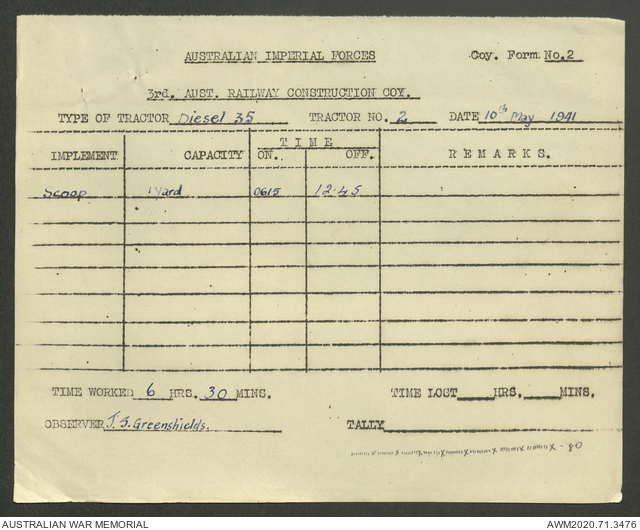 AUSTRALIAN IMPERIAL FORCES Coy. Form No.2
3rd. AUST. RAILWAY CONSTRUCTION COY.
TYPE OF TRACTOR Diesel 35 TRACTOR NO. 2 DATE 10th May 1941
TIME
IMPLEMENT CAPACITY ON.. OFF. REMARKS.
Scoop 1 yard 0615 12.45
TIME WORKED 6 HRS. 30 MINS. TIME LOST HRS. MINS.
OBSERVER J. S. Greenshields. TALLY
80
AUSTRALIAN WAR MEMORIAL AWM2020.71.3476